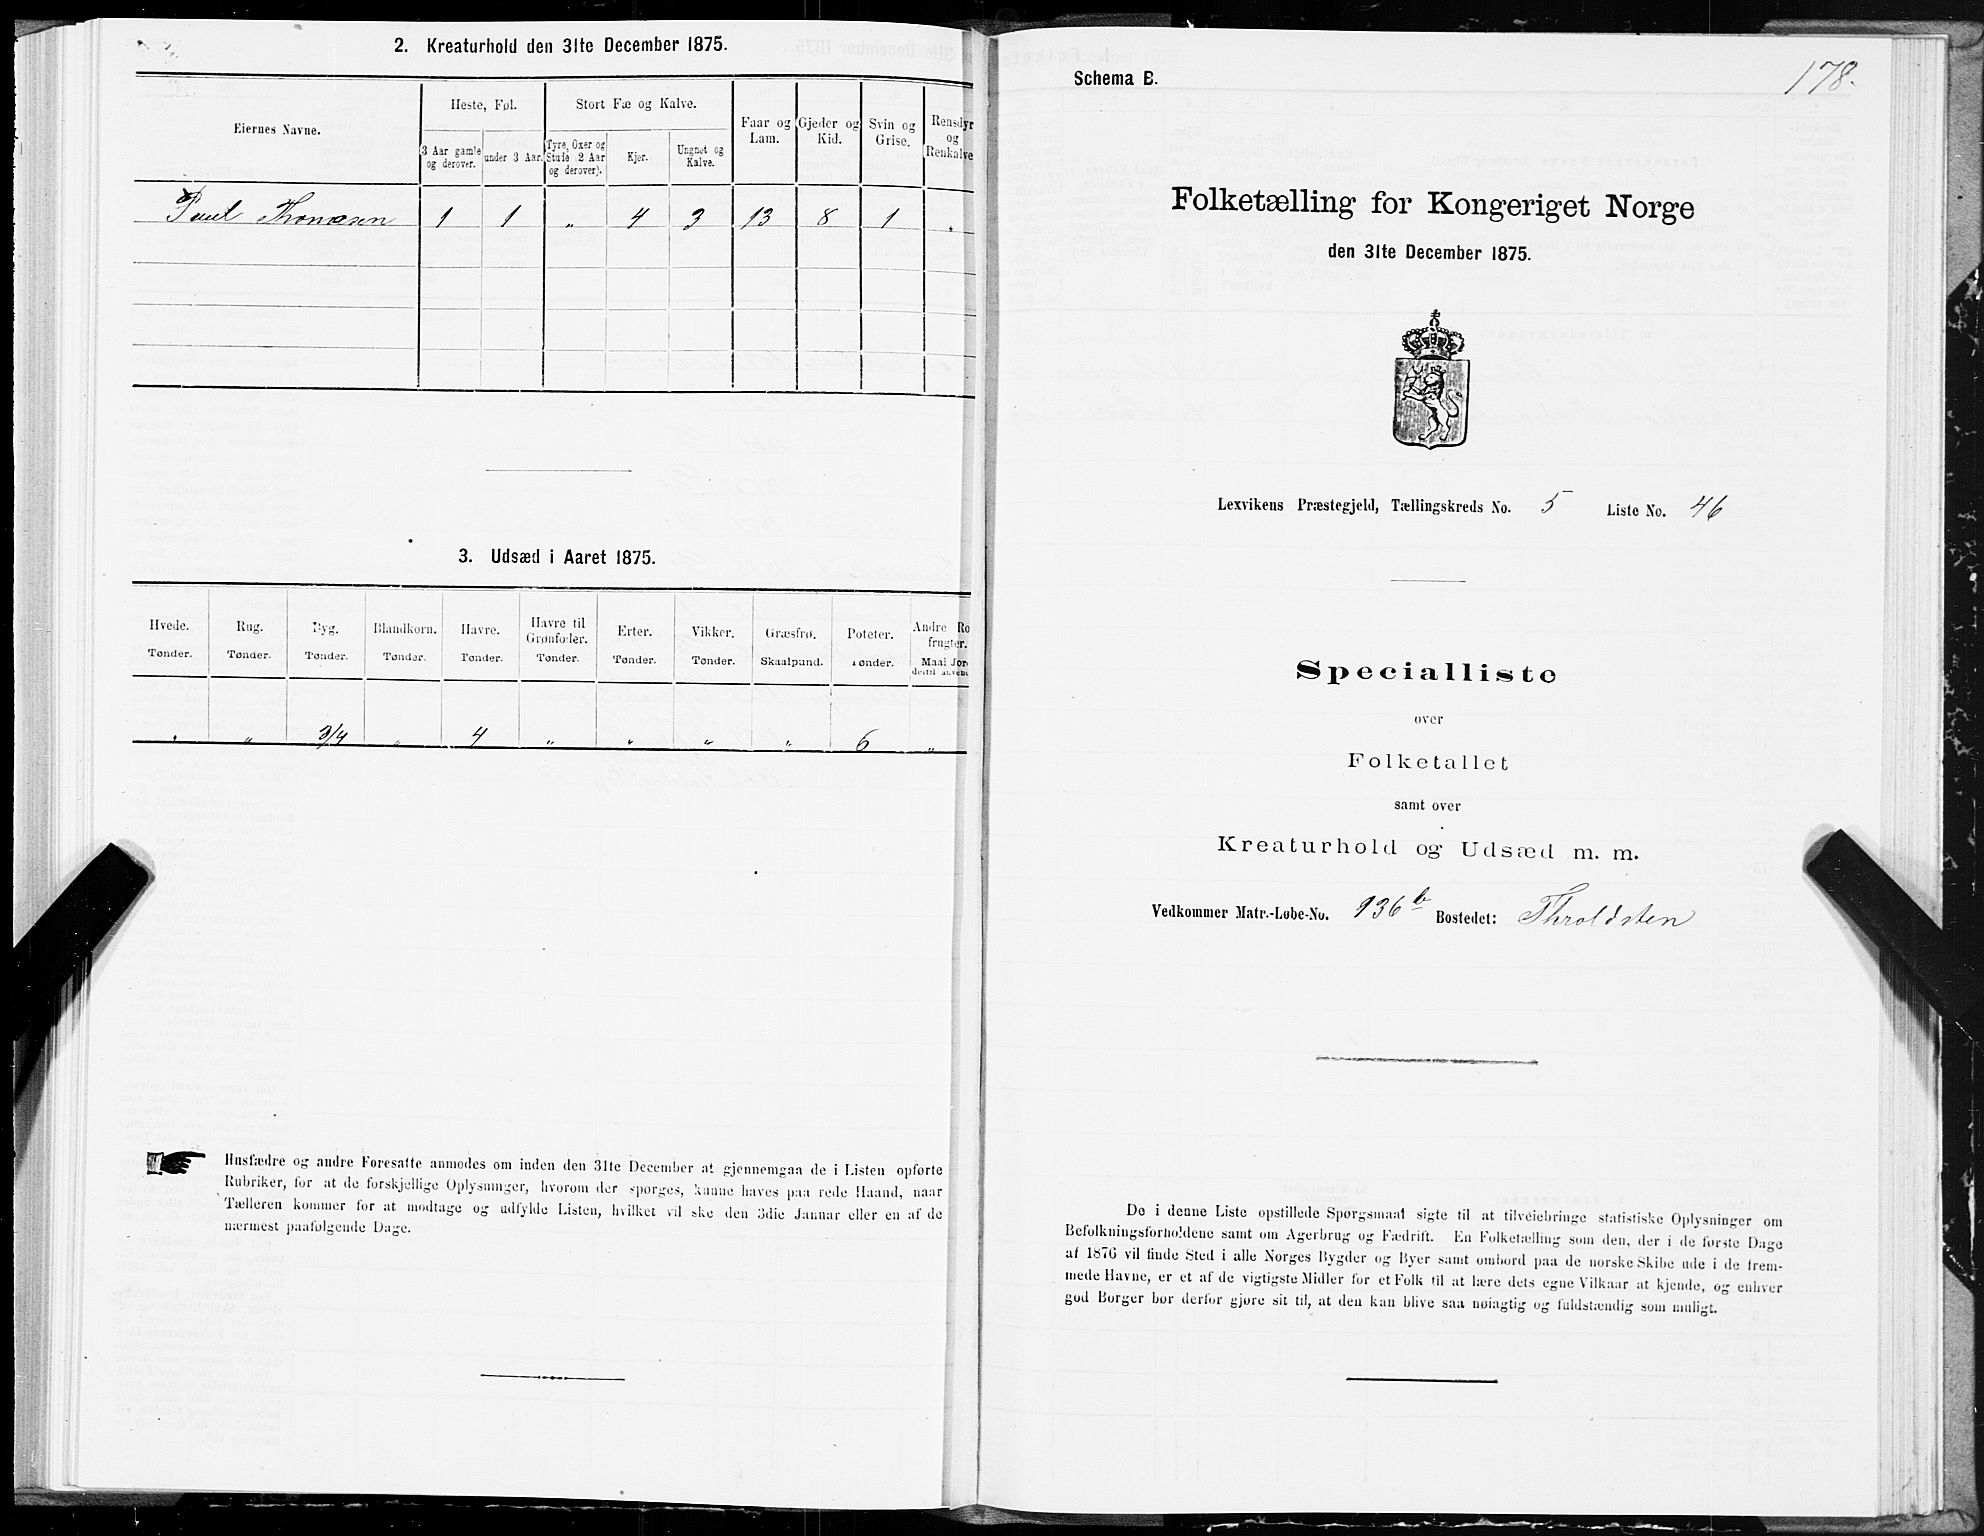 2. Kreaturhold den 31te December 1875.
Eiernes Navne.
Heste, Føl.
Stort Fæ og Kalve.
Faar og Lam.
Gjeder og Kid.
Svin og Grise.
Rensdyr og Renkalve
3 Aar gamle og derover.
under 3 Aar.
Tyre, Oxer og Stude 2 Aar og derover).
Kjer.
Ungnøt og Kalve.
Paul Thomasen 1 1 " 4 3 13 8 1 "
3. Udsæd i Aaret 1875.
Hvede. Rug. Byg. Blandkorn. Havre. Havre til Grønfoder. Erter. Vikker. Græsfrø. Poteter. Andre Ro frugter.
Tønder. Tønder. Tønder. Tønder. Tønder. Tønder. Tønder. Tønder. Skaalpund. Tønder. Maal Jor dertil anvend
" " 3/4 " 4 " " " " 6 "
Husfædre og andre Foresatte anmodes om inden den 31te December at gjennemgaa de i Listen opførte
Rubriker, for at de forskjellige Oplysninger, hvorom der spørges, kunne haves paa rede Haand, naar
Tælleren kommer for at modtage og udfylde Listen, hvilket vil ske den 3die Januar eller en af de
nærmest paafølgende Dage.
Schema B.
178.
Folketælling for Kongeriget Norge
den 31te December 1875.
Lexvikens Præstegjeld, Tællingskreds No. 5 Liste No. 46
Specialliste
over
Folketallet
samt over
Kreaturhold og Udsæd m. m.
Vedkommer Matr.-Løbe-No. 136b Bostedet: Throldsten
De i denne Liste opstillede Spørgsmaal sigte til at tilveiebringe statistiske Oplysninger om
Befolkningsforholdene samt om Agerbrug og Fædrift. En Folketælling som den, der i de første Dage
af 1876 vil finde Sted i alle Norges Bygder og Byer samt ombord paa de norske Skibe ude i de frem-
mede Havne, er et af de vigtigste Midler for et Folk til at lære dets egne Vilkaar at kjende, og enhver
god Borger bør derfor gjøre sit til, at den kan blive saa nøiagtig og fuldstændig som muligt.